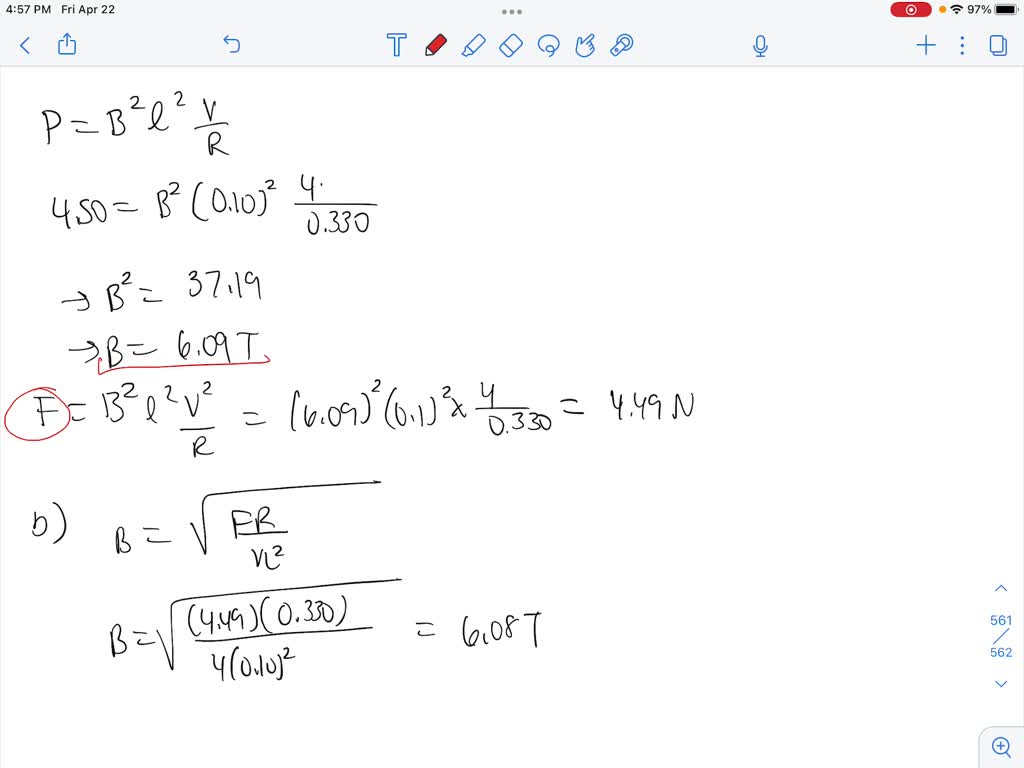 4:57 PM Fri Apr 22
97%
P = B² l² V/R
4.50 = B² (0.10)² 4./0.330
→ B² = 37.19
→ B = 6.09 T
F = B² l² V²/R = (6.09)² (0.1)² x 4/0.330 = 4.49 N
b) B = √(FR/vl²)
B = √((4.49)(0.330)/4(0.10)²) = 6.08T
561
562